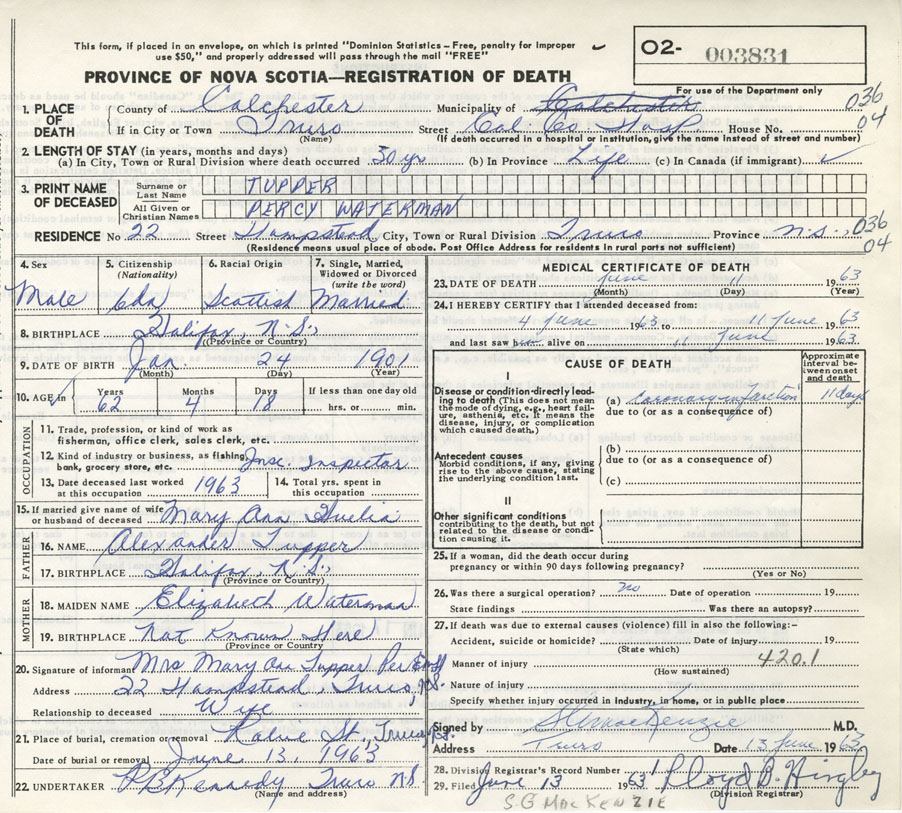 This form, if placed in an envelope, on which is printed "Dominion Statistics – Free, penalty for improper
use $50," and properly addressed will pass through the mail "FREE"
O2- 003831
PROVINCE OF NOVA SCOTIA—REGISTRATION OF DEATH
For use of the Department only
1. PLACE OF DEATH
County of Colchester Municipality of Colchester 036
If in City or Town Truro Street Col. Co Hosp. House No. 04
(Name) (If death occurred a hospital or institution, give the name instead of street and number)
2. LENGTH OF STAY (in years, months and days)
(a) In City, Town or Rural Division where death occurred 30 yr (b) In Province Life (c) In Canada (if immigrant)
3. PRINT NAME OF DECEASED
Surname or Last Name TUPPER
All Given or Christian Names PERCY WATERMAN
RESIDENCE No. 22 Street Hampstead City, Town or Rural Division Truro Province N.S., 036
(Residence means usual place of abode. Post Office Address for residents in rural parts not sufficient) 04
4. Sex 5. Citizenship (Nationality) 6. Racial Origin 7. Single, Married, Widowed or Divorced (write the word)
Male Cdn Scottish Married
8. BIRTHPLACE Halifax, N.S.,
(Province or Country)
9. DATE OF BIRTH Jan. 24 1901
(Month) (Day) (Year)
10. AGE Years Months Days If less than one day old
62 4 18 hrs. or min.
OCCUPATION
11. Trade, profession, or kind of work as
fisherman, office clerk, sales clerk, etc.
12. Kind of industry or business, as fishing, bank, grocery store, etc. Insc. Inspector
13. Date deceased last worked at this occupation 1963 14. Total yrs. spent in this occupation
15. If married give name of wife or husband of deceased Mary Ann
FATHER
16. NAME Alexander Tupper
17. BIRTHPLACE Halifax, N.S.,
(Province or Country)
MOTHER
18. MAIDEN NAME Elizabeth Waterman
19. BIRTHPLACE Not Known Here
(Province or Country)
20. Signature of informant Mrs Mary Tupper Per
Address 22 Hampstead, Truro, N.S.
Relationship to deceased Wife
21. Place of burial, cremation or removal St, Truro
Date of burial or removal June 13, 1963
22. UNDERTAKER Kennedy Truro N.S.
(Name and address)
MEDICAL CERTIFICATE OF DEATH
23. DATE OF DEATH June 11 1963
(Month) (Day) (Year)
24. I HEREBY CERTIFY that I attended deceased from:
4 June 1963. to 11 June 1963
and last saw him alive on 11 June 1963.
CAUSE OF DEATH
Approximate interval between onset and death
I
Disease or condition directly leading to death (This does not mean the mode of dying, e.g., heart failure, asthenia, etc. It means the disease, injury, or complication which caused death.)
(a) Coronary infarction 11 days
due to (or as a consequence of)
Antecedent causes
Morbid conditions, if any, giving rise to the above cause, stating the underlying condition last.
(b)
due to (or as a consequence of)
(c)
II
Other significant conditions
contributing to the death, but not related to the disease or condition causing it.
25. If a woman, did the death occur during
pregnancy or within 90 days following pregnancy?
(Yes or No)
26. Was there a surgical operation? no Date of operation 19
State findings Was there an autopsy?
27. If death was due to external causes (violence) fill in also the following:–
Accident, suicide or homicide? Date of injury 19
(State which)
Manner of injury 420.1
(How sustained)
Nature of injury
Specify whether injury occurred in industry, in home, or in public place
Signed by S G MacKenzie M.D.
Address Truro Date 13 June 1963
28. Division Registrar's Record Number
29. Filed June 13 1963 Lloyd B. Hingley
(Division Registrar)
S.G MACKENZIE